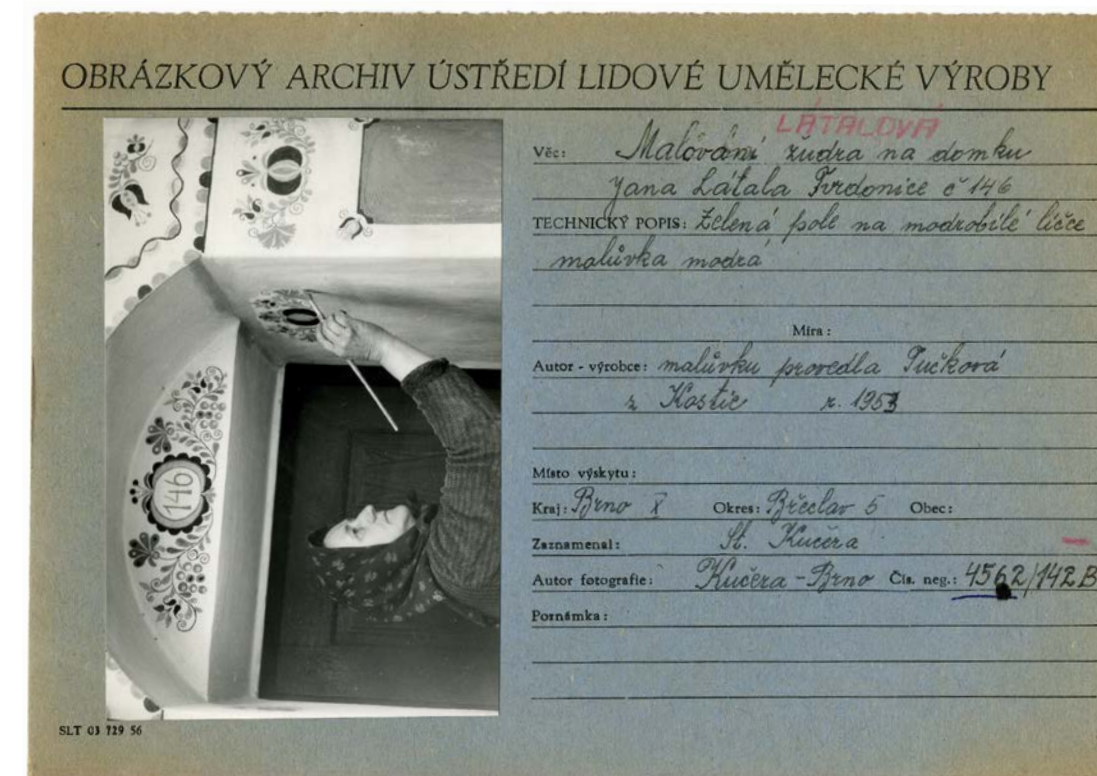 OBRÁZKOVÝ ARCHIV ÚSTŘEDÍ LIDOVÉ UMĚLECKÉ VÝROBY
LÁTALOVÁ
Věc: Malování žudra na domku
Jana Látala Tvrdonice č 146
TECHNICKÝ POPIS: Zelená pole na modrobílé líčce
malůvka modrá
Míra:
Autor - výrobce: malůvku provedla Tučková
z Kostic r. 1953
Místo výskytu:
Kraj: Brno X Okres: Břeclav 5 Obec:
Zaznamenal: St. Kučera
Autor fotografie: Kučera - Brno Čís. neg.: 4562/142B
Poznámka:
146
SLT 03 729 56